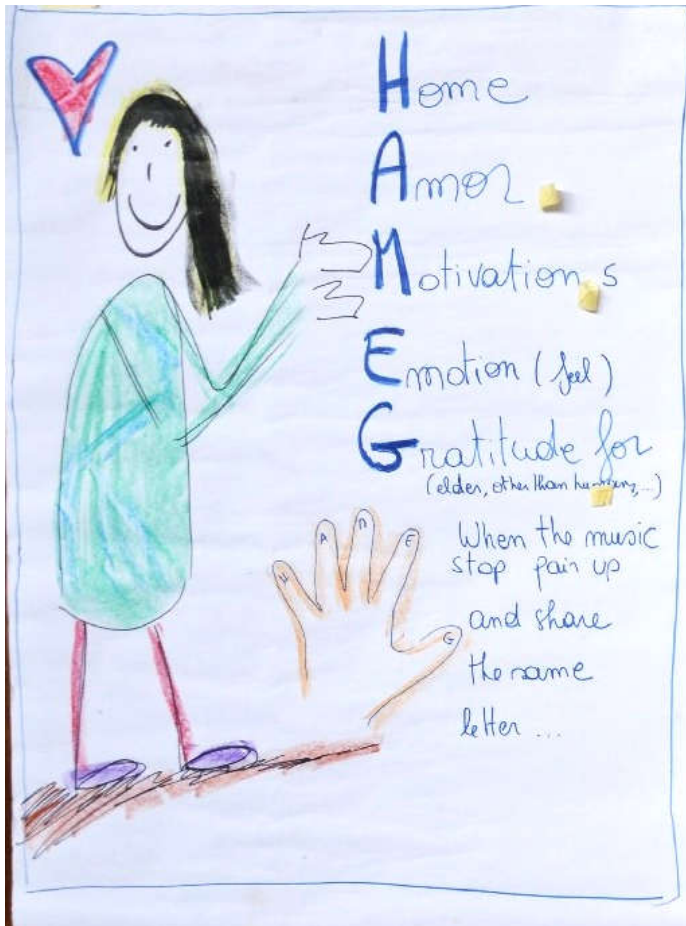 Home
Amor
Motivations
Emotion (feel)
Gratitude for
(elder, other than humans, ...)
H A M E G
When the music
stop pair up
and share
the same
letter ...